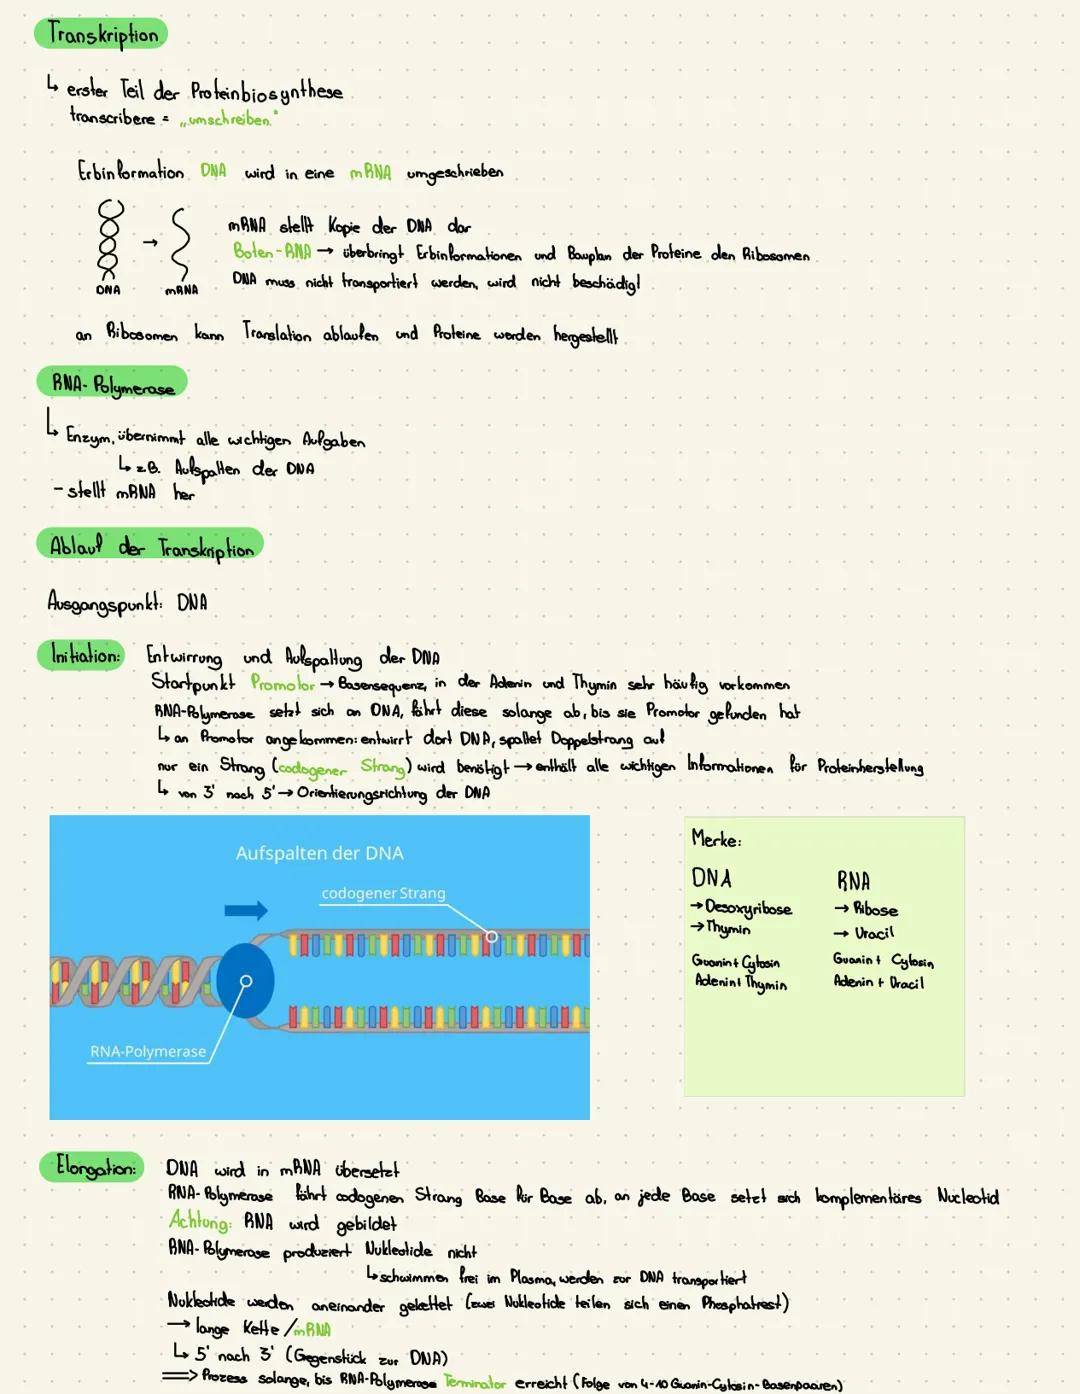 Transkription
↳ erster Teil der Proteinbiosynthese
transcribere = „umschreiben"
Erbinformation DNA wird in eine mRNA umgeschrieben
mRNA stellt Kopie der DNA dar
Boten-RNA → überbringt Erbinformationen und Bauplan der Proteine den Ribosomen
DNA muss nicht transportiert werden, wird nicht beschädigt
→
DNA mRNA
an Ribosomen kann Translation ablaufen und Proteine werden hergestellt
RNA-Polymerase
↳ Enzym, übernimmt alle wichtigen Aufgaben
↳ z.B. Aufspalten der DNA
- stellt mRNA her
Ablauf der Transkription
Ausgangspunkt: DNA
Initiation: Entwirrung und Aufspaltung der DNA
Startpunkt Promotor → Basensequenz, in der Adenin und Thymin sehr häufig vorkommen
RNA-Polymerase setzt sich an DNA, fährt diese solange ab, bis sie Promotor gefunden hat
↳ an Promotor angekommen: entwirrt dort DNA, spaltet Doppelstrang auf
nur ein Strang (codogener Strang) wird benötigt → enthält alle wichtigen Informationen für Proteinherstellung
↳ von 3' nach 5' → Orientierungsrichtung der DNA
Aufspalten der DNA
codogener Strang
RNA-Polymerase
Merke:
DNA RNA
→ Desoxyribose → Ribose
→ Thymin → Uracil
Guanin + Cytosin Guanin + Cytosin
Adenin + Thymin Adenin + Uracil
Elongation: DNA wird in mRNA übersetzt
RNA-Polymerase fährt codogenen Strang Base für Base ab, an jede Base setzt sich komplementäres Nucleotid
Achtung: RNA wird gebildet
RNA-Polymerase produziert Nukleotide nicht
↳ schwimmen frei im Plasma, werden zur DNA transportiert
Nukleotide werden aneinander gekettet (zwei Nukleotide teilen sich einen Phosphatrest)
→ lange Kette / mRNA
↳ 5' nach 3' (Gegenstück zur DNA)
⟹ Prozess solange, bis RNA-Polymerase Terminator erreicht (Folge von 4-10 Guanin-Cytosin-Basenpaaren)